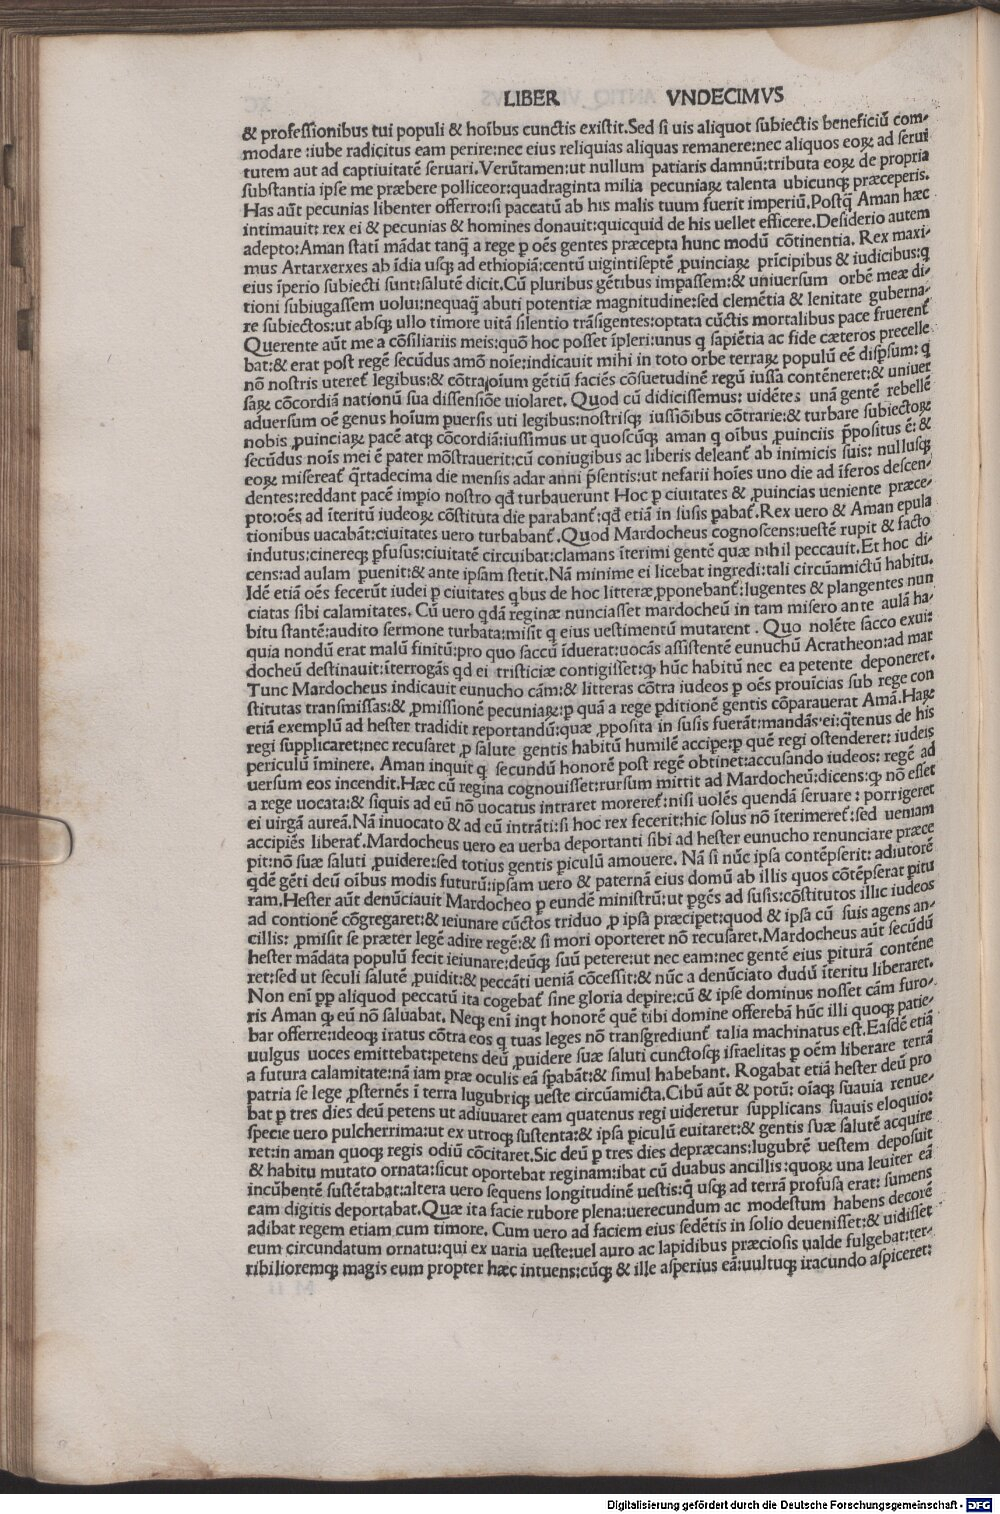 LIBER VNDECIMVS
& professionibus tui populi & hoībus cunctis existit.Sed si uis aliquot subiectis beneficiū com-
modare :iube radicitus eam perire:nec eius reliquias aliquas remanere:nec aliquos eoꝝ ad serui
tutem aut ad captiuitatē seruari.Verūtamen:ut nullum patiaris damnū:tributa eoꝝ de propria
substantia ipse me præbere polliceor:quadraginta milia pecuniaꝝ talenta ubicunqꝫ præceperis.
Has aūt pecunias libenter offerro:si paccatū ab his malis tuum fuerit imperiū.Postq̄ Aman hæc
intimauit: rex ei & pecunias & homines donauit:quicquid de his uellet efficere.Desiderio autem
adepto:Aman statī mādat tanq̄ a rege ꝑ oēs gentes præcepta hunc modū cōtinentia. Rex maxi-
mus Artarxerxes ab īdia usqꝫ ad ethiopiā:centū uigintiseptē ꝓuinciaꝝ prīcipibus & iudicibus:q
eius īperio subiecti sunt:salutē dicit.Cū pluribus gētibus impassem:& uniuersum orbē meæ di-
tioni subiugassem uolui:nequaq̄ abuti potentiæ magnitudine:sed clemētia & lenitate guberna-
re subiectos:ut absqꝫ ullo timore uitā silentio trāsigentes:optata cūctis mortalibus pace fruerent̄
Querente aūt me a cōsiliariis meis:quō hoc posset īpleri:unus q sapiētia ac fide cæteros precelle
bat:& erat post regē secūdus amō noīe:indicauit mihi in toto orbe terraꝝ populū eē disꝑsum: q
nō nostris uteret̄ legibus:& cōtra,oium gētiū faciēs cōsuetudinē regū iussa contēneret:& uniuer
saꝝ cōcordiā nationū sua dissensiōe uiolaret. Quod cū didicissemus: uidētes unā gentē rebellē
aduersum oē genus hoīum ꝑuersis uti legibus:nostrisqꝫ iussiōibus cōtrarie:& turbare subiectoꝝ
nobis ꝓuinciaꝝ pacē atqꝫ cōcordiā:iussimus ut quoscūqꝫ aman q oībus ꝓuinciis p̄positus ē: &
secūdus noīs mei ē pater mōstrauerit:cū coniugibus ac liberis deleant̄ ab inimicis suis: nullusqꝫ
eoꝝ misereat̄ q̄rtadecima die mensis adar anni p̄sentis:ut nefarii hoīes uno die ad īferos descen-
dentes:reddant pacē impio nostro qd̄ turbauerunt Hoc ꝑ ciuitates & ꝓuincias ueniente præce-
pto:oēs ad īteritū iudeoꝝ cōstituta die parabant̄:qd̄ etiā in susis ꝑabat̄.Rex uero & Aman epula
tionibus uacabāt:ciuitates uero turbabant̄.Quod Mardocheus cognoscens:uestē rupit & sacto
indutus:cinereqꝫ ꝑfusus:ciuitatē circuibat:clamans īterimi gentē quæ nihil peccauit.Et hoc di-
cens:ad aulam ꝑuenit:& ante ipsam stetit.Nā minime ei licebat ingredi:tali circūamictū habitu.
Idē etiā oēs fecerūt iudei ꝑ ciuitates q̄bus de hoc litteræ ꝓponebant̄:lugentes & plangentes nun
ciatas sibi calamitates. Cū uero q̄dā reginæ nunciasset mardocheū in tam misero ante aulā ha-
bitu stantē:audito sermone turbata:misit q eius uestimentū mutarent . Quo nolēte sacco exui:
quia nondū erat malū finitū:pro quo saccū īduerat:uocās assistentē eunuchū Acratheon:ad mar
docheū destinauit:īterrogās qd ei tristiciæ contigisset:ꝙ hūc habitū nec ea petente deponeret.
Tunc Mardocheus indicauit eunucho cām:& litteras cōtra iudeos ꝑ oēs prouīcias sub rege con
stitutas transmissas:& ꝓmissionē pecuniaꝝ:ꝑ quā a rege ꝑditionē gentis cōparauerat Amā.Haꝝ
etiā exemplū ad hester tradidit reportandū:quæ ꝓposita in susis fuerāt:mandās ei:q̄tenus de his
regi supplicaret:nec recusaret ꝓ salute gentis habitū humilē accipe:ꝑ quē regi ostenderet: iudeis
periculū īminere. Aman inquit q secundū honorē post regē obtinet:accusando iudeos: regē ad
uersum eos incendit.Hæc cū regina cognouisset:rursum mittit ad Mardocheū:dicens:ꝙ nō esset
a rege uocata:& siquis ad eū nō uocatus intraret moreret̄:nisi uolēs quendā seruare : porrigeret
ei uirgā aureā.Nā inuocato & ad eū intrāti:si hoc rex fecerit:hic solus nō īterimeret̄:sed ueniam
accipiēs liberat̄.Mardocheus uero ea uerba deportanti sibi ad hester eunucho renunciare præce
pit:nō suæ saluti ꝓuidere:sed totius gentis piculū amouere. Nā si nūc ipsa contēpserit: adiutorē
qdē gēti deū oībus modis futurū:ipsam uero & paternā eius domū ab illis quos cōtēpserat pitu
ram.Hester aūt denūciauit Mardocheo ꝑ eundē ministrū:ut ꝑgēs ad susis:cōstitutos illic iudeos
ad contionē cōgregaret:& ieiunare cūctos triduo ꝓ ipsa præcipet:quod & ipsa cū suis agens an-
cillis: ꝓmisit se præter legē adire regē:& si mori oporteret nō recusaret.Mardocheus aūt secūdū
hester mādata populū fecit ieiunare:deūqꝫ suū petere:ut nec eam:nec gentē eius ꝑiturā contēne
ret:sed ut seculi salutē ꝓuidit:& peccāti ueniā cōcessit:& nūc a denūciato dudū īteritu liberaret.
Non enī ꝑꝑ aliquod peccatū ita cogebat̄ sine gloria depire:cū & ipse dominus nosset cām furo-
ris Aman ꝙ eū nō saluabat. Neqꝫ enī inqt honorē quē tibi domine offerebā hūc illi quoqꝫ patie-
bar offerre:ideoqꝫ iratus cōtra eos q tuas leges nō transgrediunt̄ talia machinatus est.Easdē etiā
uulgus uoces emittebat:petens deū ꝓuidere suæ saluti cunctosqꝫ israelitas ꝑ oēm liberare terrā
a futura calamitate:nā iam præ oculis eā sꝑabāt:& simul habebant. Rogabat etiā hester deū pro
patria se lege ꝓsternēs ī terra lugubriqꝫ ueste circūamicta.Cibū aūt & potū: oīaqꝫ suauia renue-
bat ꝑ tres dies deū petens ut adiuuaret eam quatenus regi uideretur supplicans suauis eloquio:
specie uero pulcherrima:ut ex utroqꝫ sustenta:& ipsa piculū euitaret:& gentis suæ salutē acquire
ret:in aman quoqꝫ regis odiū cōcitaret.Sic deū ꝑ tres dies depræcans:lugubrē uestem deposuit
& habitu mutato ornata:sicut oportebat reginam:ibat cū duabus ancillis:quoꝝ una leuiter eā
incūbentē sustētabat:altera uero sequens longitudinē uestis:q̄ usqꝫ ad terrā profusa erat: sumens
eam digitis deportabat.Quæ ita facie rubore plena:uerecundum ac modestum habens decorē
adibat regem etiam cum timore. Cum uero ad faciem eius sedētis in solio deuenisset:& uidisset
eum circundatum ornatu:qui ex uaria ueste:uel auro ac lapidibus præciosis ualde fulgebat:ter-
ribilioremqꝫ magis eum propter hæc intuens:cūqꝫ & ille asperius eā:uultuqꝫ iracundo aspiceret:
Digitalisierung gefördert durch die Deutsche Forschungsgemeinschaft - DFG